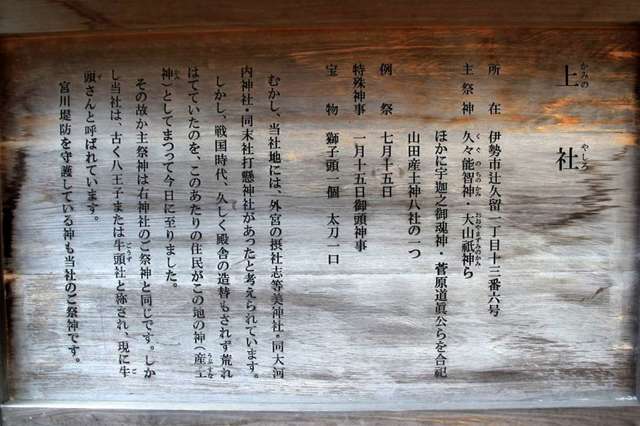 上社
かみの やしろ
所在 伊勢市辻久留一丁目十三番六号
主祭神 久々能智神・大山祇神ら
くぐのちのかみ おおやまずみのかみ
ほかに宇迦之御魂神・菅原道眞公らを合祀
山田産土神八社の一つ
例祭 七月十五日
特殊神事 一月十五日御頭神事
宝物 獅子頭一個 太刀一口
むかし、当社地には、外宮の摂社志等美神社・同大河
内神社・同末社打懸神社があったと考えられています。
しかし、戦国時代、久しく殿舎の造替もされず荒れ
はてていたのを、このあたりの住民がこの地の神（産土
うぶすな
神）としてまつって今日に至りました。
がみ
その故か主祭神は右神社のご祭神と同じです。しか
し当社は、古く八王子または牛頭社と称され、現に牛
ごうず ご
頭さんと呼ばれています。
ず
宮川堤防を守護している神も当社のご祭神です。